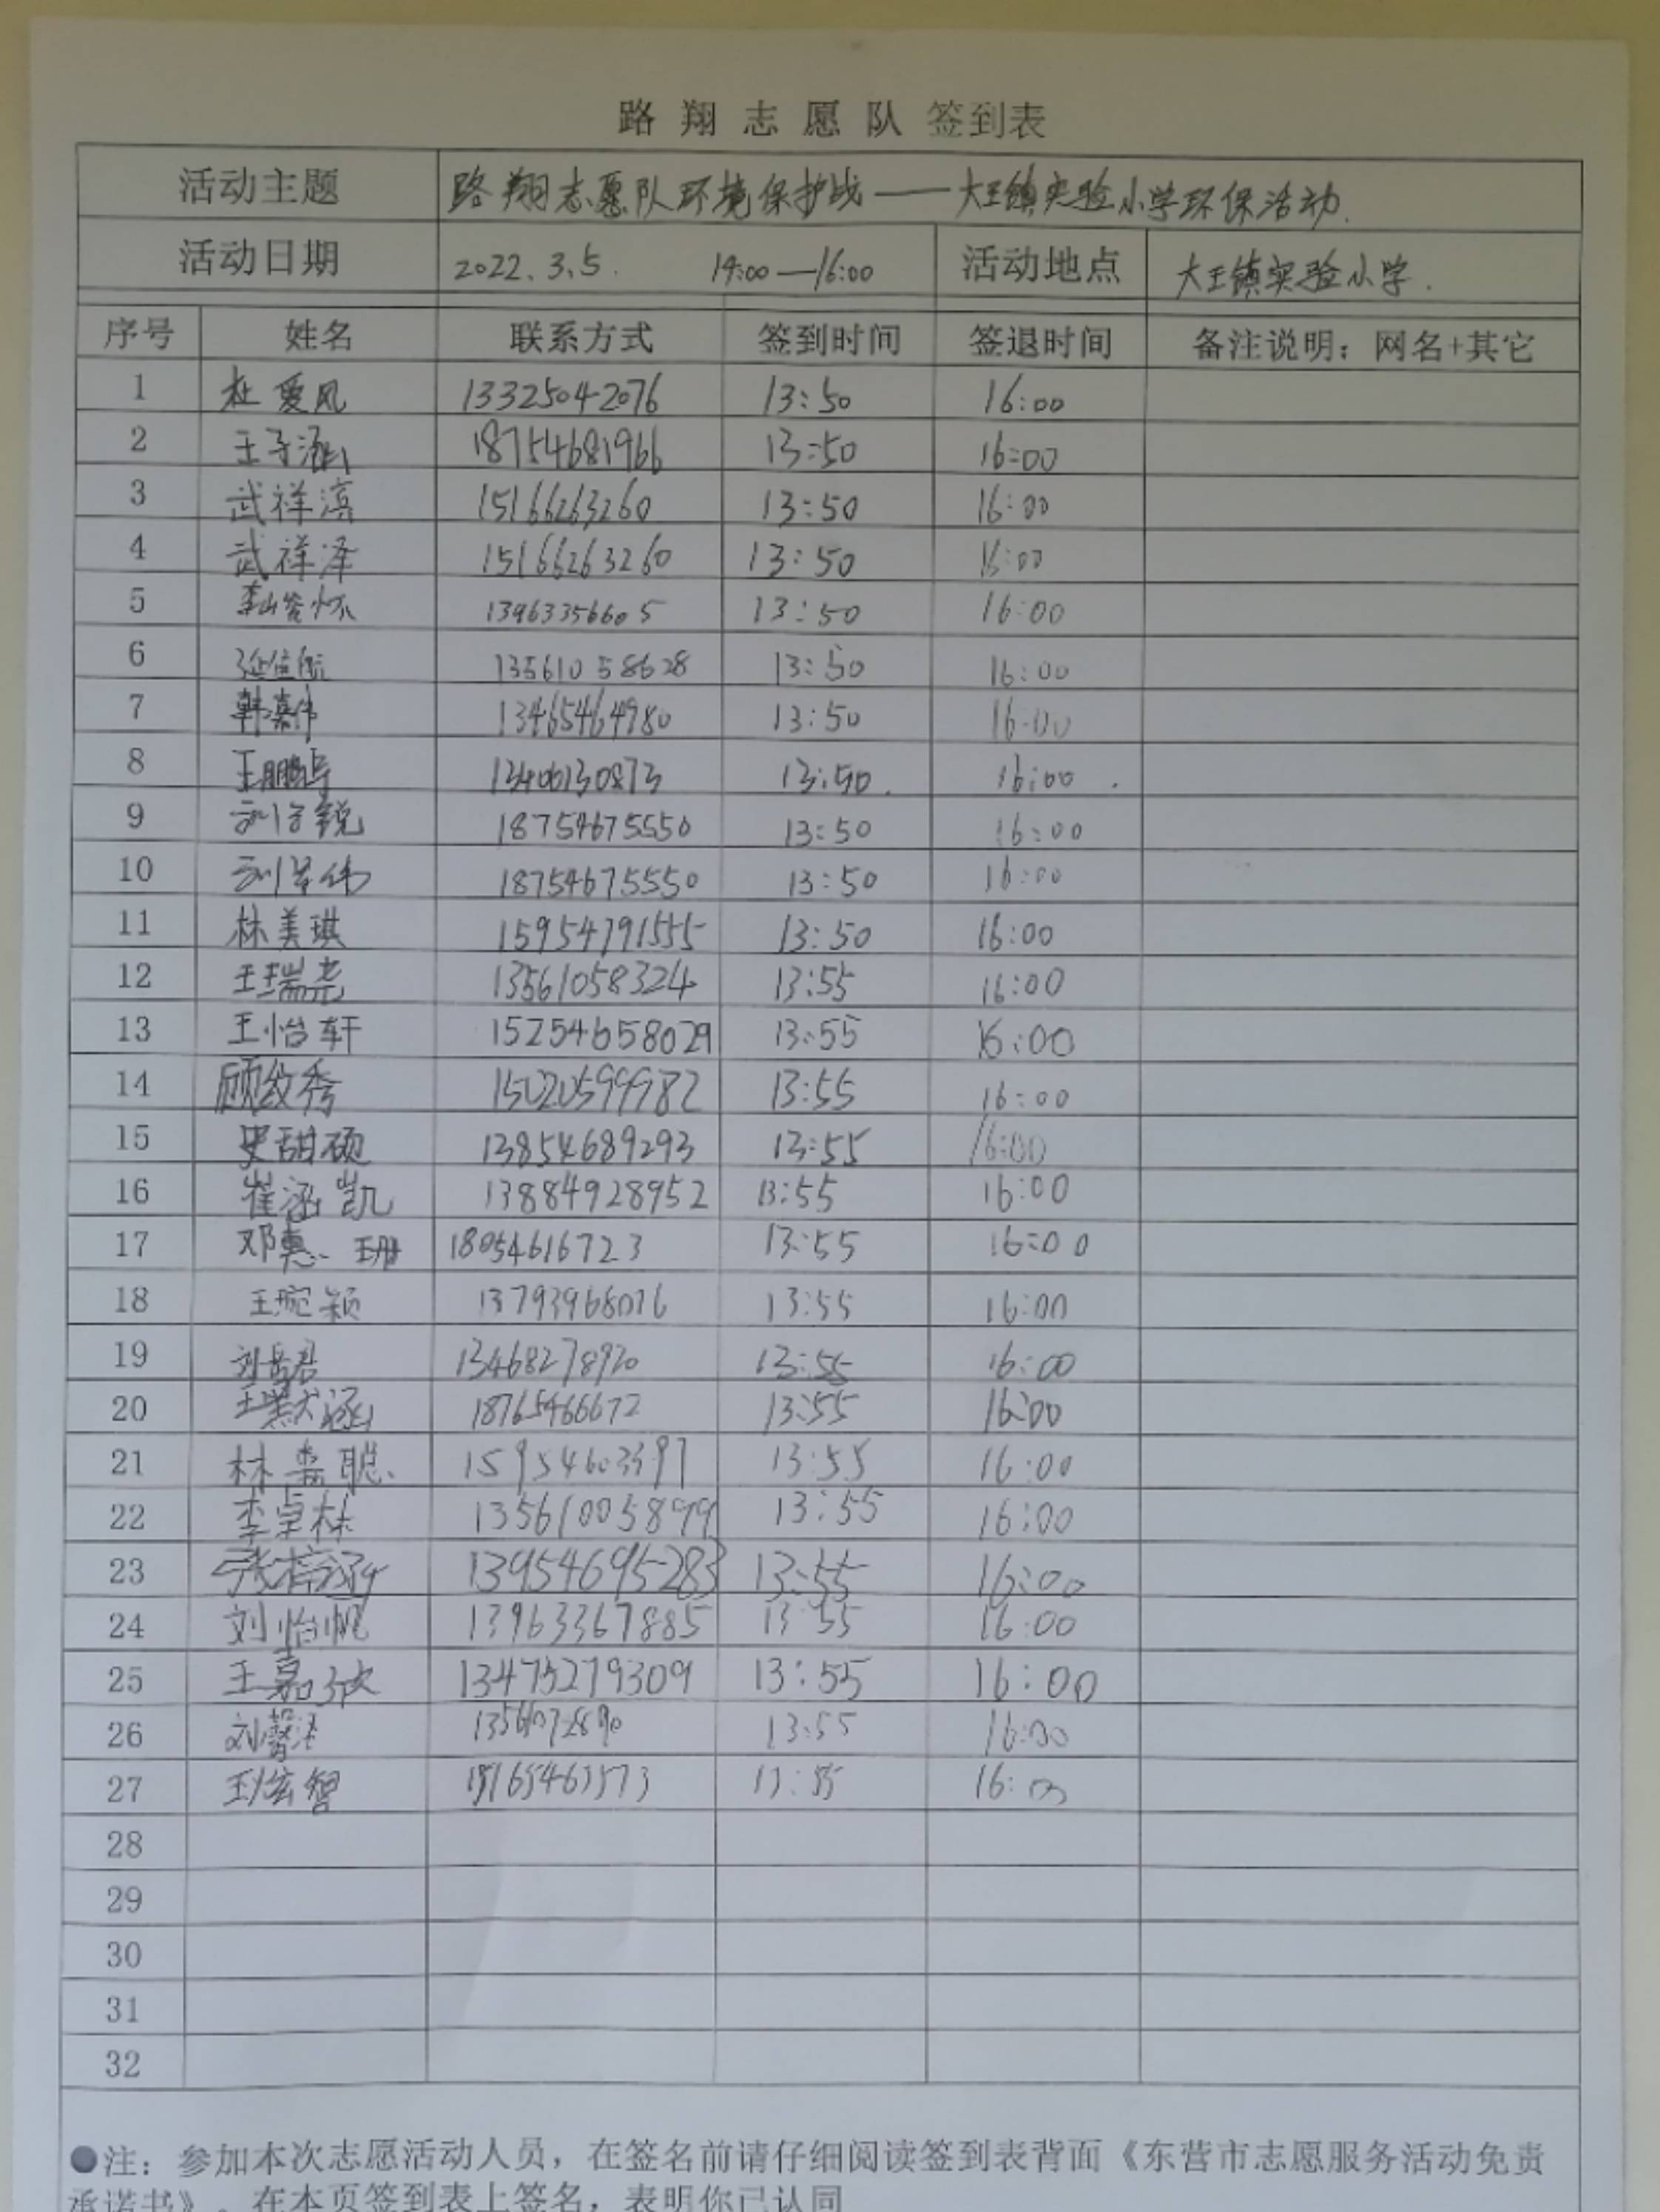 路翔志愿队签到表
活动主题 路翔志愿队环境保护战——大王镇实验小学环保活动.
活动日期 2022.3.5. 14:00—16:00 活动地点 大王镇实验小学.
序号 姓名 联系方式 签到时间 签退时间 备注说明：网名+其它
1 杜爱风 13325042076 13:50 16:00
2 王子涵 18754681966 13:50 16:00
3 武祥滨 15166263260 13:50 16:00
4 武祥泽 15166263260 13:50 16:00
5 13963356605 13:50 16:00
6 13561058628 13:50 16:00
7 韩嘉伟 13465464980 13:50 16:00
8 王鹏 13406130873 13:50. 16:00.
9 刘 锐 18754675550 13:50 16:00
10 刘 伟 18754675550 13:50 16:00
11 林美琪 15954791555 13:50 16:00
12 王瑞尧 13561058324 13:55 16:00
13 王怡轩 15254658029 13:55 16:00
14 顾纹秀 15020599982 13:55 16:00
15 史甜硕 13854689293 13:55 16:00
16 崔涵凯 13884928952 13:55 16:00
17 邓惠珊 18054616723 13:55 16:00
18 王琬颖 13793968076 13:55 16:00
19 刘岳君 13468278920 13:55 16:00
20 涵 18765466672 13:55 16:00
21 林 聪 15954603391 13:55 16:00
22 李卓林 13561005899 13:55 16:00
23 张梓涵 13954695283 13:55 16:00
24 刘怡帆 13963367885 13:55 16:00
25 王嘉 13475279309 13:55 16:00
26 刘馨 13:55 16:00
27 智 13:55 16:00
28
29
30
31
32
●注：参加本次志愿活动人员，在签名前请仔细阅读签到表背面《东营市志愿服务活动免责
承诺书》，在本页签到表上签名，表明你已认同